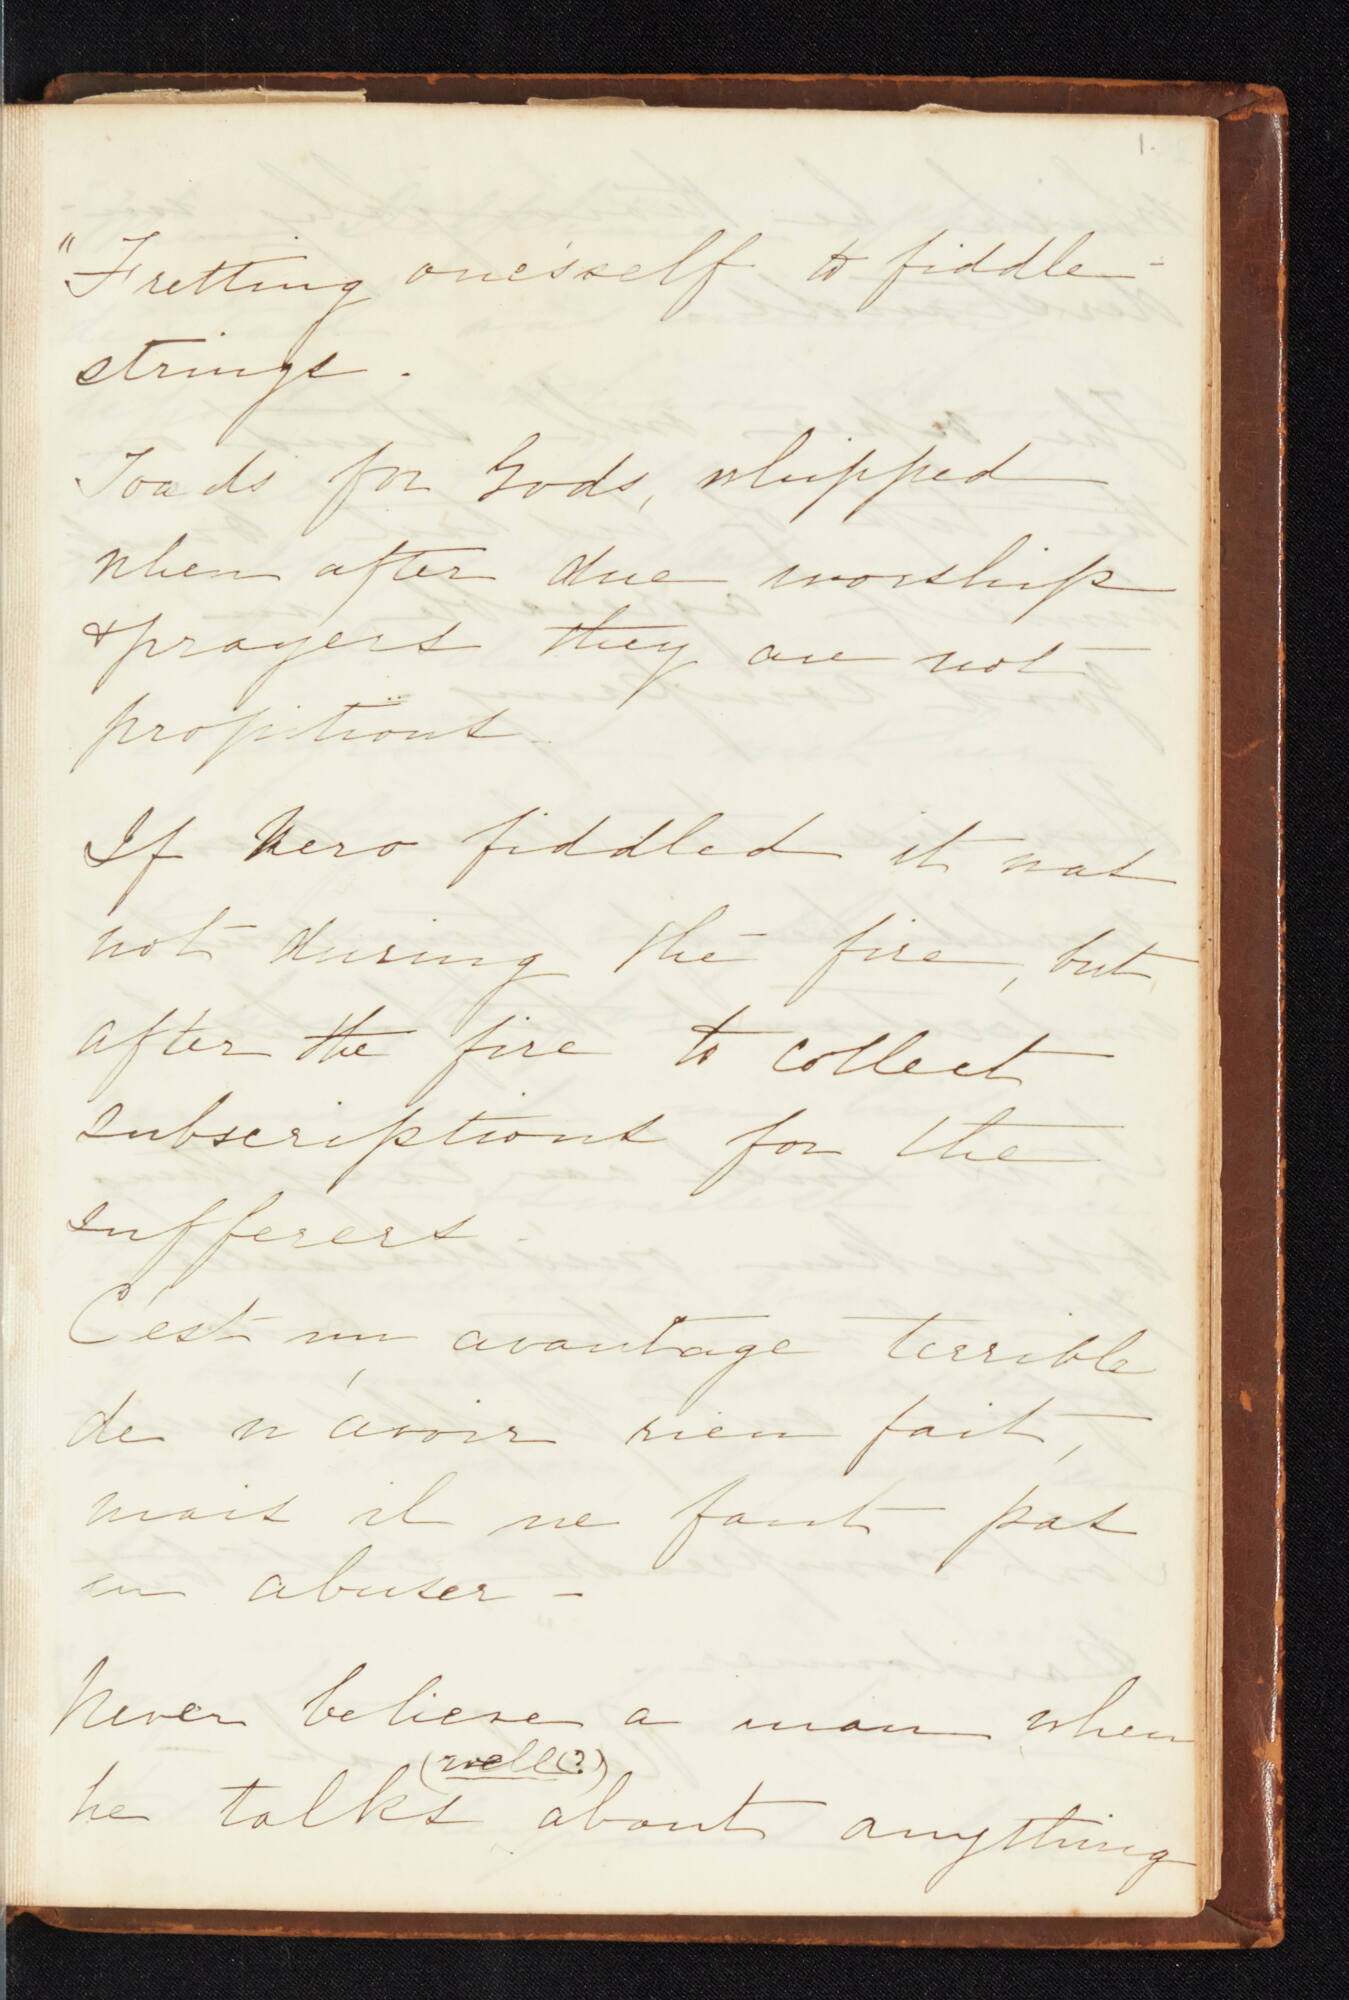 1.
"Fretting one'sself to fiddle-
strings.
Toads for Gods, whipped
when after due worship
& prayers they are not
propitious.
If Nero fiddled it was
not during the fire, but
after the fire to collect
subscriptions for the
sufferers.
C'est un avantage terrible
de n'avoir rien fait,
mais il ne faut pas
en abuser –
Never believe a man when
(well?)
he talks about anything